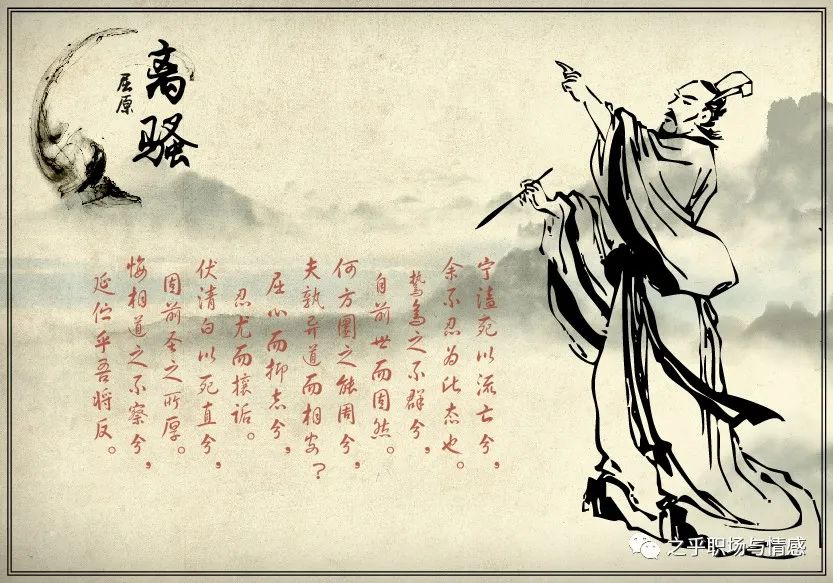 离骚
屈原
宁溘死以流亡兮，
余不忍为此态也。
鸷鸟之不群兮，
自前世而固然。
何方圜之能周兮，
夫孰异道而相安？
屈心而抑志兮，
忍尤而攘诟。
伏清白以死直兮，
固前圣之所厚。
悔相道之不察兮，
延伫乎吾将反。
之乎职场与情感